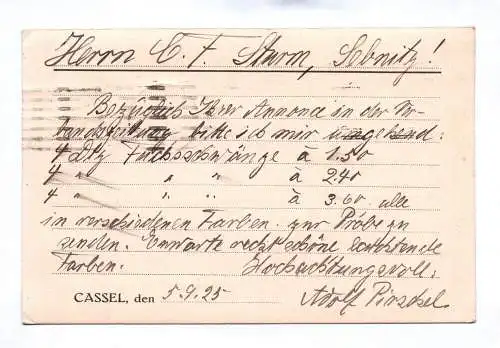 Herrn C. F. Sturm, Sebnitz!
Bezüglich Ihrer Annonce in der Ver-
bandszeitung bitte ich mir umgehend:
4 Dtz Fuchsschwänge à 1.50
4 " " " à 2.40
4 " " " à 3.60 alle
in verschiedenen Farben zur Probe zu
senden. Erwarte recht schöne leuchtende
Farben. Hochachtungsvoll:
CASSEL, den 5.9.25 Adolf